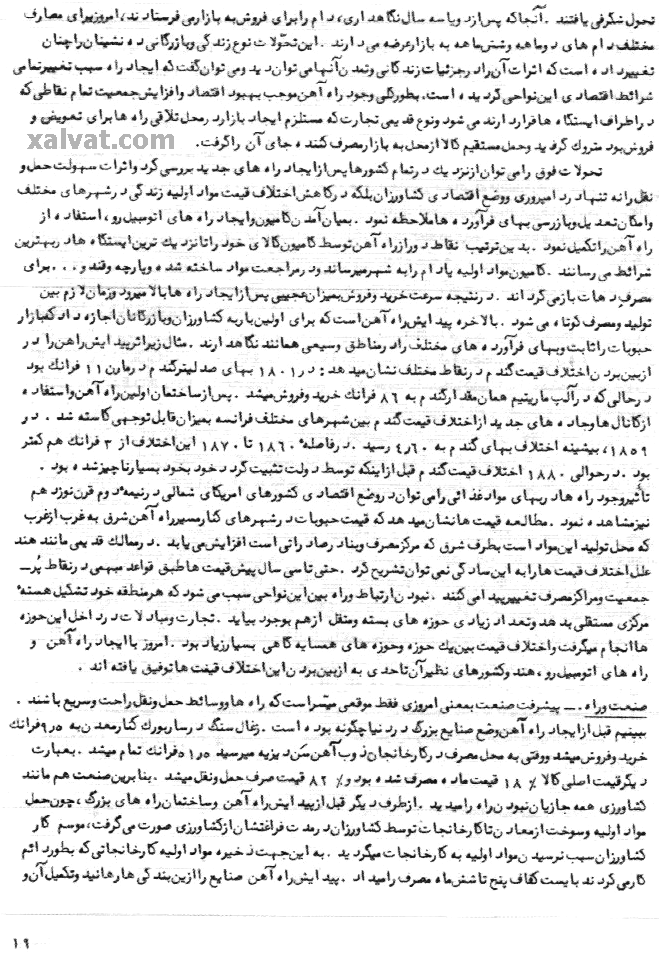 تحول شگرفی یافتند . آنجا که پس از دو یا سه سال نگاهداری، دام را برای فروش به بازار می فرستادند، امروز برای مصارف
مختلف دام های دو ماهه و شش ماهه به بازار عرضه می دارند . این تحولات نوع زندگی و بازرگانی ده نشینان را چنان
تغییر داده است که اثرات آن را در جزئیات زندگانی و تمدن آنها می توان دید و می توان گفت که ایجاد راه سبب تغییر تمامی
شرائط اقتصادی این نواحی گردیده است. بطور کلی وجود راه آهن موجب بهبود اقتصاد و افزایش جمعیت تمام نقاطی که
در اطراف ایستگاه ها قرار دارند می شود و نوع قدیمی تجارت که مستلزم ایجاد بازار در محل تلاقی راه ها برای تعویض و
فروش بود متروک گردید و حمل مستقیم کالا از محل به بازار مصرف کننده جای آن را گرفت.
xalvat.com
تحولات فوق را می توان از نزدیک در تمام کشورها پس از ایجاد راه های جدید بررسی کرد و اثرات سهولت حمل و
نقل را نه تنها در امپروری و وضع اقتصادی کشاورزان بلکه در کاهش اختلاف قیمت مواد اولیه زندگی در شهرهای مختلف
و امکان تعدیل و بازرسی بهای فرآورده ها ملاحظه نمود . بمیان آمدن کامیون و ایجاد راه های اتومبیل رو، استفاده از
راه آهن را تکمیل نمود . بدین ترتیب نقاط دور از راه آهن توسط کامیون کالای خود را تا نزدیک ترین ایستگاه ها در بهترین
شرائط می رسانند . کامیون مواد اولیه یا دام را به شهر میرساند و در مراجعت مواد ساخته شده و پارچه و قند و ... برای
مصرف دهات باز می گرداند . در نتیجه سرعت خرید و فروش بمیزان عجیبی پس از ایجاد راه ها بالا میرود و زمان لازم بین
تولید و مصرف کوتاه می شود . بالاخره پیدایش راه آهن است که برای اولین بار به کشاورزان و بازرگانان اجازه داد که بازار
حبوبات را ثابت و بهای فرآورده های مختلف را در مناطق وسیعی همانند نگاهدارند . مثال زیر اثر پیدایش راهن را در
از بین بردن اختلاف قیمت گندم در نقاط مختلف نشان میدهد : در ۱۸۰۱ بهای صد لیتر گندم در مارن ۱۱ فرانک بود
در حالی که در آلپ ماریتیم همان مقدار گندم به ۸۶ فرانک خرید و فروش میشد . پس از ساختمان اولین راه آهن و استفاده
از کانال ها و جاده های جدید از اختلاف قیمت گندم بین شهرهای مختلف فرانسه بمیزان قابل توجهی کاسته شد . در
۱۸۵۹، بیشینه اختلاف بهای گندم به ۴٫۶۰ رسید . در فاصله ۱۸۶۰ تا ۱۸۷۰ این اختلاف از ۳ فرانک هم کمتر
بود . در حوالی ۱۸۸۰ اختلاف قیمت گندم قبل از اینکه توسط دولت تثبیت گردد خود بخود بسیار ناچیز شده بود .
تأثیر وجود راه ها در بهای مواد غذائی را می توان در وضع اقتصادی کشورهای امریکای شمالی در نیمه دوم قرن نوزدهم
نیز مشاهده نمود . مطالعه قیمت ها نشان میدهد که قیمت حبوبات در شهرهای کنار مسیر راه آهن شرق به غرب از غرب
که محل تولید این مواد است بطرف شرق که مرکز مصرف و بنادر صادراتی است افزایش می یابد . در ممالک قدیمی مانند هند
علل اختلاف قیمت ها را به این سادگی نمی توان تشریح کرد . حتی تا سی سال پیش قیمت ها طبق قواعد مبهمی در نقاط پر ــ
جمعیت و مراکز مصرف تغییر پیدا می کنند . نبودن ارتباط و راه بین این نواحی سبب می شود که هر منطقه خود تشکیل هسته
مرکزی مستقلی بدهد و تعداد زیادی حوزه های بسته و منتقل از هم بوجود بیاید . تجارت و مبادلات در داخل این حوزه
ها انجام میگرفت و اختلاف قیمت بین یک حوزه و حوزه های همسایه گاهی بسیار زیاد بود . امروز با ایجاد راه آهن و
راه های اتومبیل رو ، هند و کشورهای نظیر آن تا حدی به از بین بردن این اختلاف قیمت ها توفیق یافته اند .
صنعت و راه . ــ پیشرفت صنعت بمعنی امروزی فقط موقعی میسر است که راه ها و وسائط حمل و نقل راحت و سریع باشند .
ببینیم قبل از ایجاد راه آهن وضع صنایع بزرگ در دنیا چگونه بوده است . زغال سنگ در ساربورک کنار معدن به ۹٫۵ فرانک
خرید و فروش میشد و وقتی به محل مصرف در کارخانجات ذوب آهن سن دیزیه میرسید ۵۱٫۵ فرانک تمام میشد . بعبارت
دیگر قیمت اصلی کالا ٪ ۱۸ قیمت ماده مصرف شده بود و ٪ ۸۲ قیمت صرف حمل و نقل میشد . بنابرین صنعت هم مانند
کشاورزی همه جا زیان نبودن راه را میدید . از طرف دیگر قبل از پیدایش راه آهن و ساختمان راه های بزرگ ، چون حمل
مواد اولیه و سوخت از معادن تا کارخانجات توسط کشاورزان در مدت فراغتشان از کشاورزی صورت می گرفت، موسم کار
کشاورزان سبب نرسیدن مواد اولیه به کارخانجات میگردید . به این جهت ذخیره مواد اولیه کارخانجاتی که بطور دائم
کار می کردند بایست کفاف پنج تا شش ماه مصرف را میداد . پیدایش راه آهن صنایع را از این بندگی ها رهانید و تکمیل آن و
۱۹